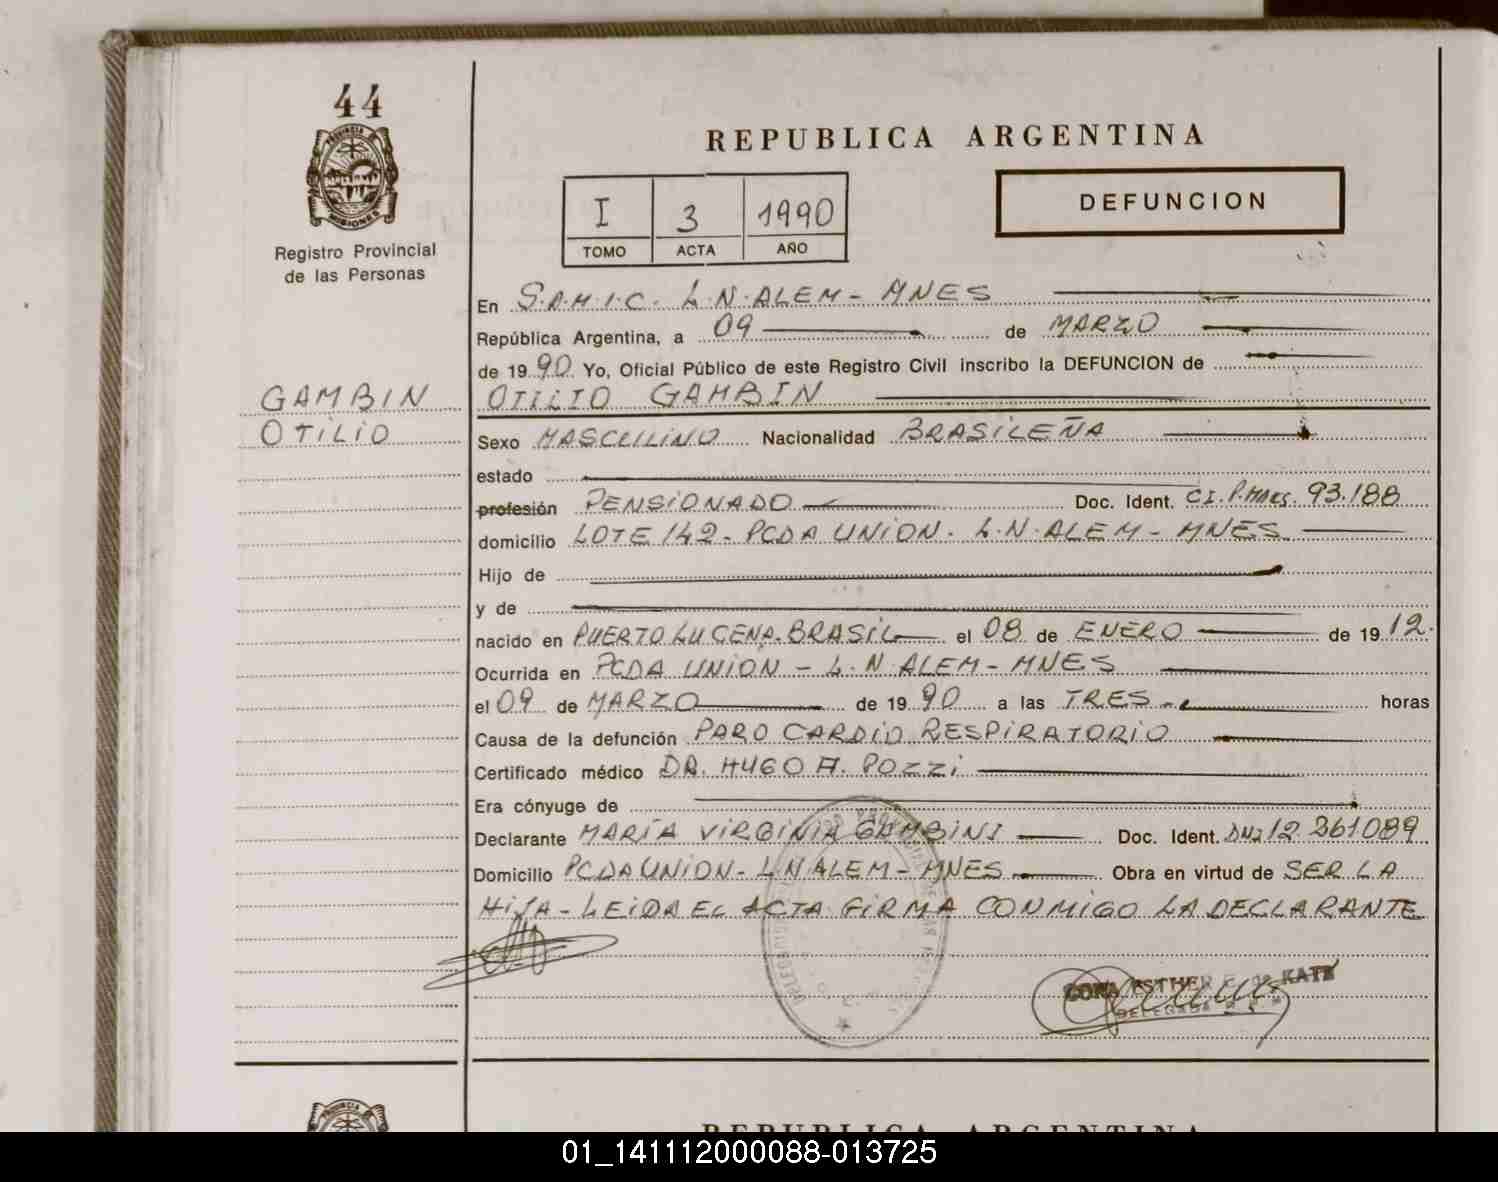 44
REPUBLICA ARGENTINA
PROVINCIA DE
MISIONES
I 3 1990
TOMO ACTA AÑO
DEFUNCION
Registro Provincial
de las Personas
En S.A.M.I.C. L.N. ALEM - MNES
República Argentina, a 09 de MARZO
de 1990 Yo, Oficial Público de este Registro Civil inscribo la DEFUNCION de
GAMBIN OTILIO GAMBIN
OTILIO
Sexo MASCULINO Nacionalidad BRASILEÑA
estado
profesión PENSIONADO Doc. Ident. CI. P. MNES. 93.188
domicilio LOTE 142 - PCDA UNION - L.N. ALEM - MNES
Hijo de
y de
nacido en PUERTO LUCENA - BRASIL el 08 de ENERO de 1912.
Ocurrida en PCDA UNION - L.N. ALEM - MNES
el 09 de MARZO de 1990 a las TRES horas
Causa de la defunción PARO CARDIO RESPIRATORIO
Certificado médico DR. HUGO A. POZZI
Era cónyuge de
Declarante MARÍA VIRGINIA GAMBINI Doc. Ident. DNI 12.361089
Domicilio PCDA UNION - L.N ALEM - MNES Obra en virtud de SER LA
HIJA - LEIDA EL ACTA FIRMA CONMIGO LA DECLARANTE
ESTHER E. de KATZ
DELEGADA
PROVINCIA DE
REPUBLICA ARGENTINA
01_141112000088-013725